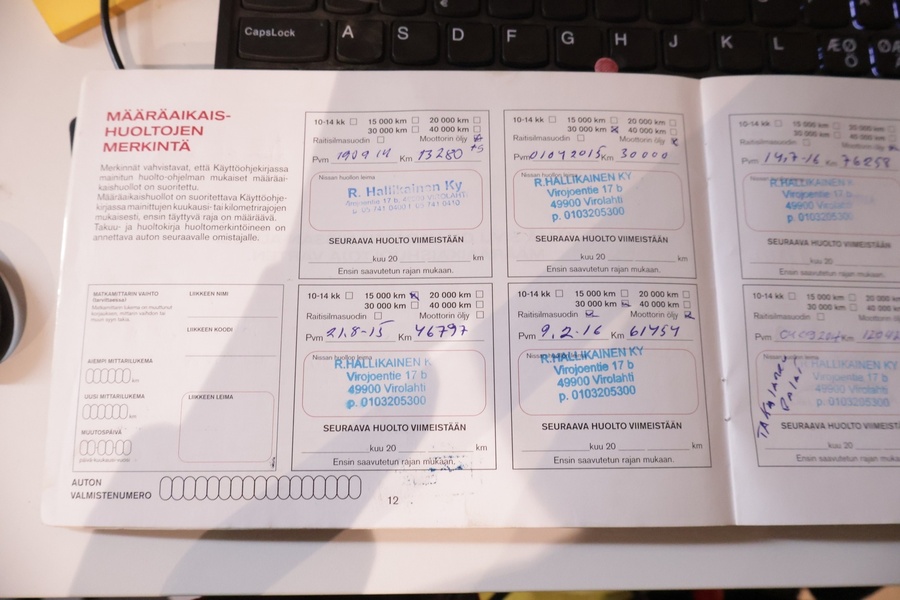 CapsLock
A S D F G H J K L ÆØ Ö ØÆ
MÄÄRÄAIKAIS-
HUOLTOJEN
MERKINTÄ
Merkinnät vahvistavat, että Käyttöohjekirjassa
mainitun huolto-ohjelman mukaiset määräai-
kaishuollot on suoritettu.
Määräaikaishuollot on suoritettava Käyttöohje-
kirjassa mainittujen kuukausi- tai kilometrirajojen
mukaisesti, ensin täyttyvä raja on määräävä.
Takuu- ja huoltokirja huoltomerkintöineen on
annettava auton seuraavalle omistajalle.
10-14 kk 15 000 km 20 000 km
30 000 km 40 000 km
Raitisilmasuodin Moottorin öljy
Pvm 190914 Km 13280
Nissan huollon leima
R. Hallikainen Ky
SEURAAVA HUOLTO VIIMEISTÄÄN
kuu 20 km
Ensin saavutetun rajan mukaan.
10-14 kk 15 000 km 20 000 km
30 000 km 40 000 km
Raitisilmasuodin Moottorin öljy
Pvm 01042015 Km 30000
Nissan huollon leima
R.HALLIKAINEN KY
Virojoentie 17 b
49900 Virolahti
p. 0103205300
SEURAAVA HUOLTO VIIMEISTÄÄN
kuu 20 km
Ensin saavutetun rajan mukaan.
10-14 kk 15 000 km 20 000
30 000 km 40 000
Raitisilmasuodin Moottorin
Pvm 14,7-16 Km 76258
Nissan huollon leima
R.HALLIKAINEN KY
Virojoentie 17 b
49900 Virolahti
p. 0103205300
SEURAAVA HUOLTO VIIMEISTÄÄN
kuu 20
Ensin saavutetun rajan mukaan.
MATKAMITTARIN VAIHTO
LIIKKEEN NIMI
LIIKKEEN KOODI
AIEMPI MITTARILUKEMA
km
UUSI MITTARILUKEMA
km
MUUTOSPÄIVÄ
LIIKKEEN LEIMA
10-14 kk 15 000 km 20 000 km
30 000 km 40 000 km
Raitisilmasuodin Moottorin öljy
Pvm 21,8-15 Km 46797
Nissan huollon leima
R.HALLIKAINEN K
Virojoentie 17 b
49900 Virolahti
p. 0103205300
SEURAAVA HUOLTO VIIMEISTÄÄN
kuu 20 km
Ensin saavutetun rajan mukaan.
10-14 kk 15 000 km 20 000 km
30 000 km 40 000 km
Raitisilmasuodin Moottorin öljy
Pvm 9,2-16 Km 61454
Nissan huollon leima
R.HALLIKAINEN KY
Virojoentie 17 b
49900 Virolahti
p. 0103205300
SEURAAVA HUOLTO VIIMEISTÄÄN
kuu 20 km
Ensin saavutetun rajan mukaan.
10-14 kk 15 000 km 20 000
30 000 km 40 000
Raitisilmasuodin Moottorin
Pvm Km
HALLIKAINEN KY
Virojoentie 17 b
49900 Virolahti
0103205300
SEURAAVA HUOLTO VIIMEISTÄÄN
kuu 20
Ensin saavutetun rajan mukaan.
AUTON
VALMISTENUMERO
12